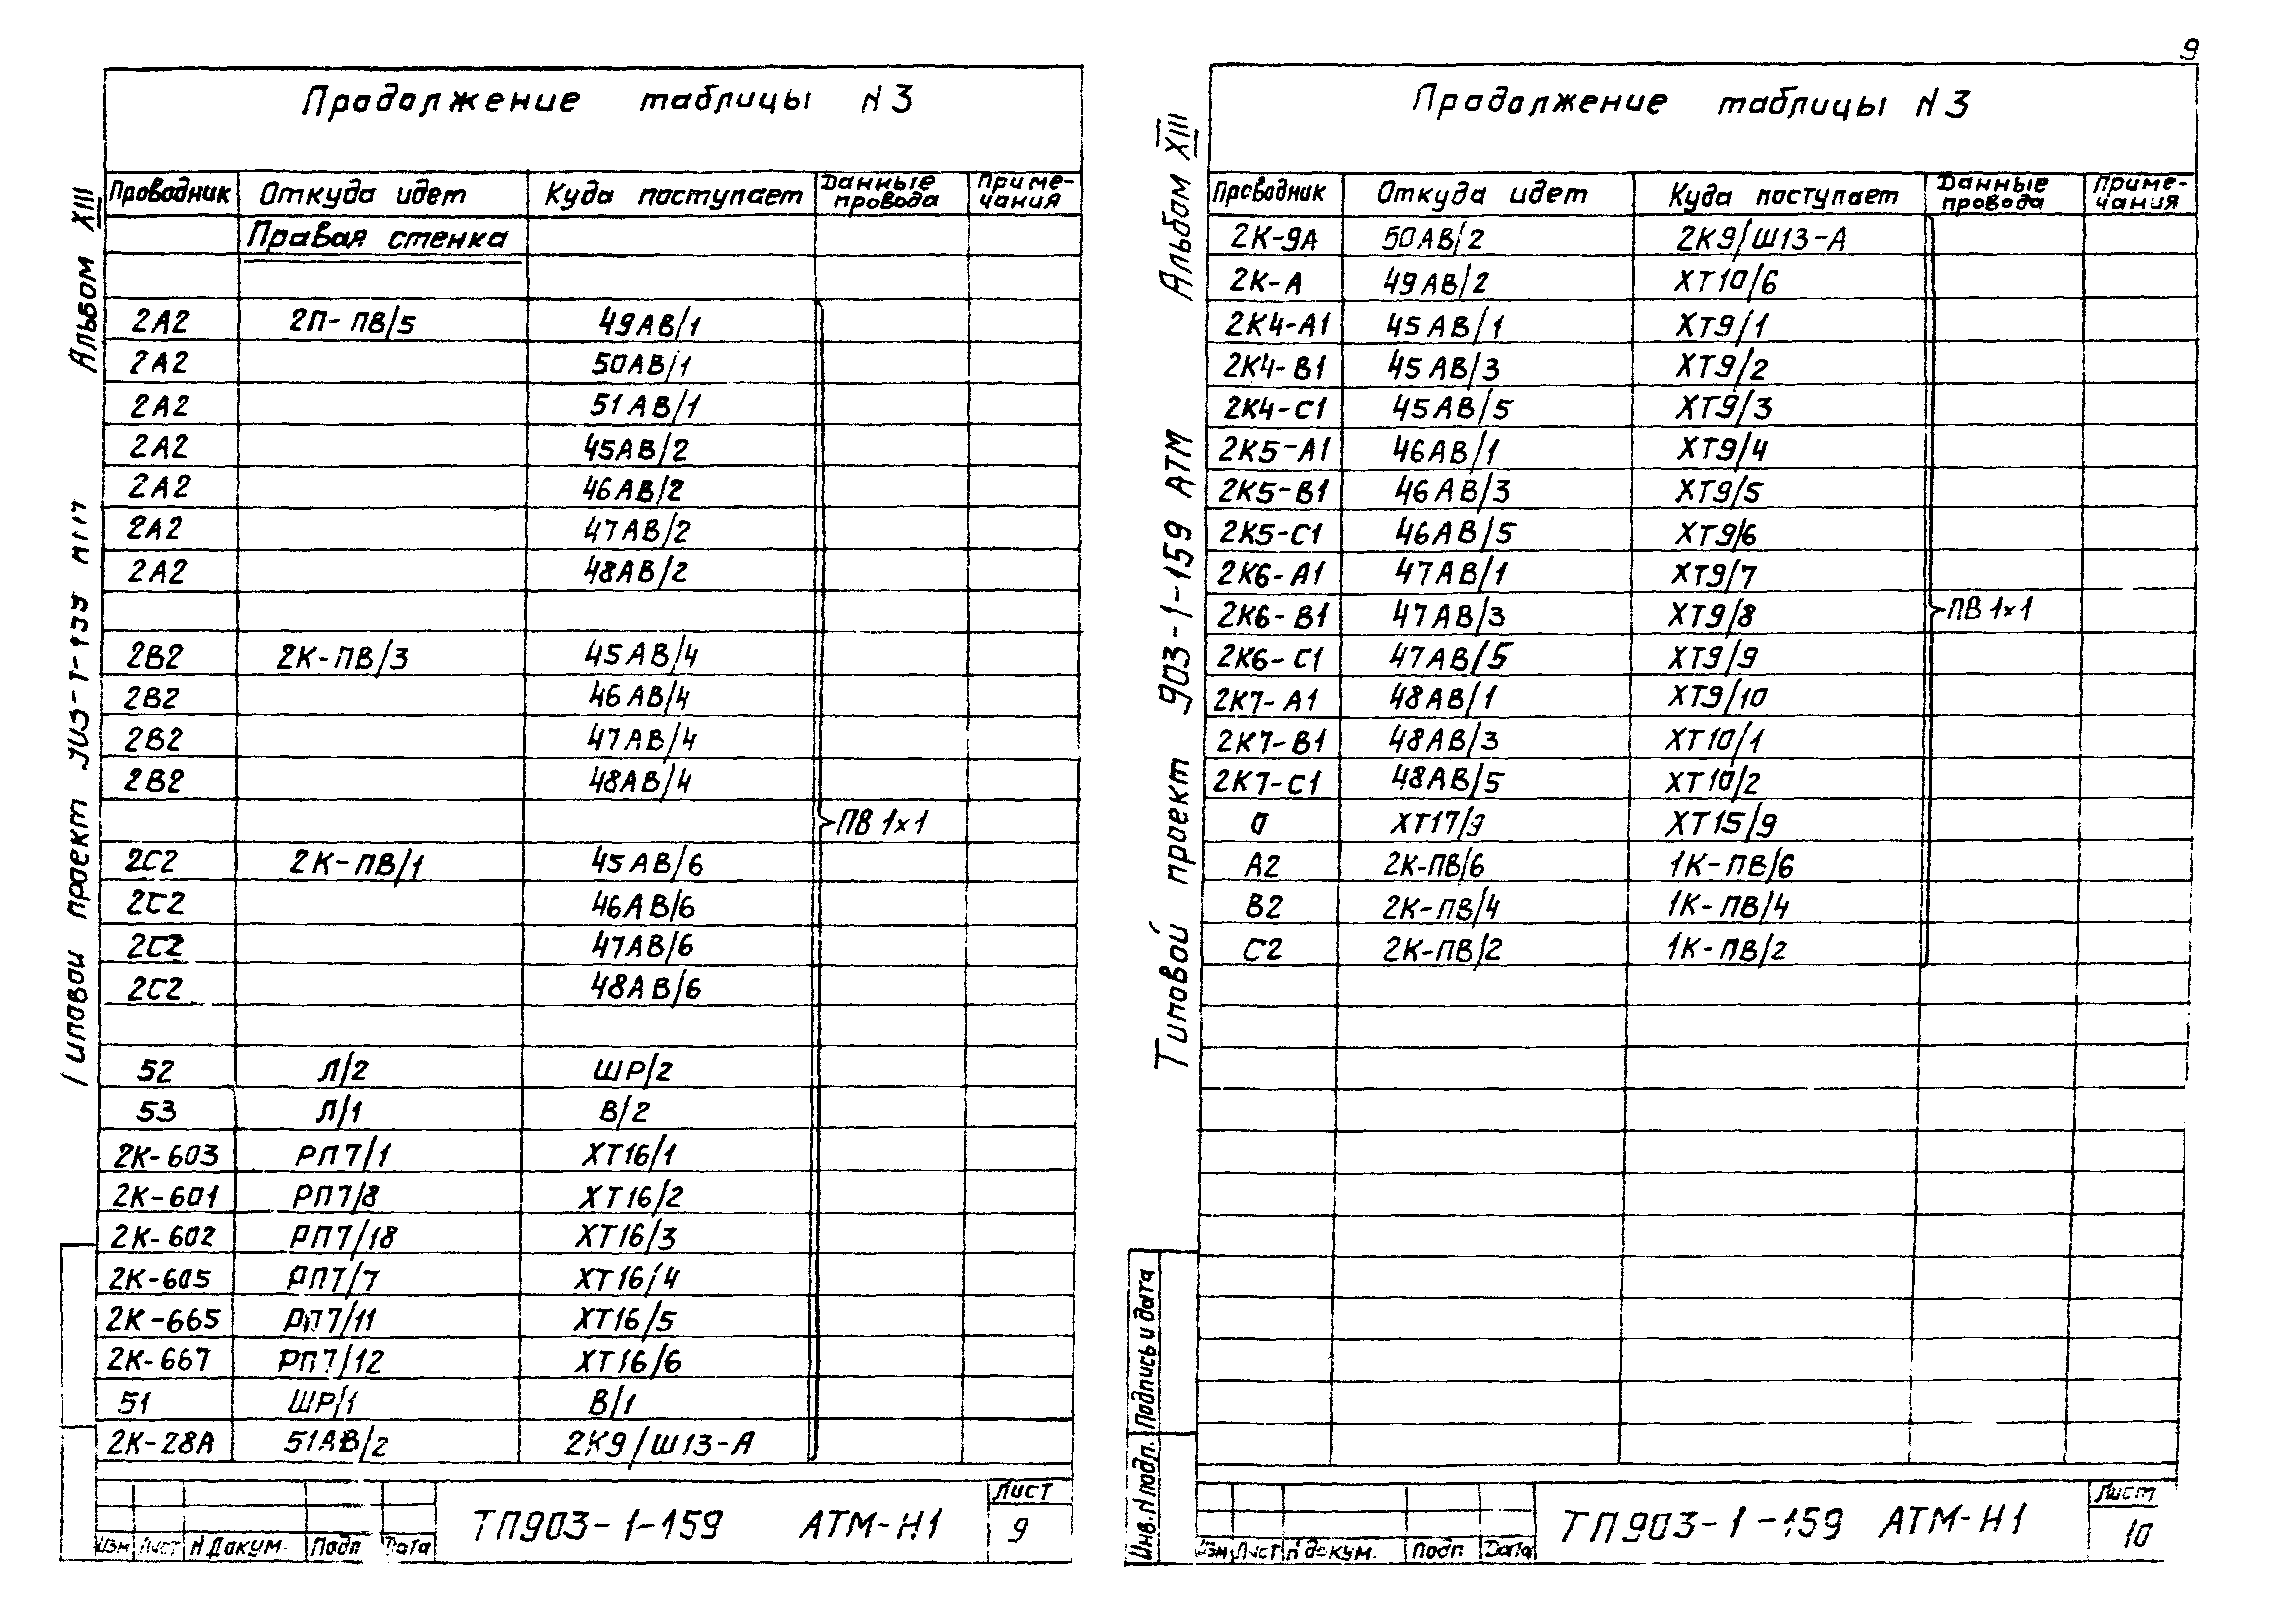 9
Альбом XIII
Продолжение таблицы N3
Проводник Откуда идет Куда поступает Данные провода Приме-чания
Правая стенка
2А2 2П-ПВ/5 49АВ/1
2А2 50АВ/1
2А2 51АВ/1
2А2 45АВ/2
2А2 46АВ/2
2А2 47АВ/2
2А2 48АВ/2
2В2 2К-ПВ/3 45АВ/4
2В2 46АВ/4
2В2 47АВ/4
2В2 48АВ/4
ПВ 1×1
2С2 2К-ПВ/1 45АВ/6
2С2 46АВ/6
2С2 47АВ/6
2С2 48АВ/6
52 Л/2 ШР/2
53 Л/1 В/2
2К-603 РП7/1 ХТ16/1
2К-601 РП7/8 ХТ16/2
2К-602 РП7/18 ХТ16/3
2К-605 РП7/7 ХТ16/4
2К-665 РП7/11 ХТ16/5
2К-667 РП7/12 ХТ16/6
51 ШР/1 В/1
2К-28А 51АВ/2 2К9/Ш13-А
Изм Лист N Докум. Подп Дата
ТП903-1-159 АТМ-Н1
Лист
9
Типовой проект 903-1-159 АТМ Альбом XIII
Продолжение таблицы N3
Проводник Откуда идет Куда поступает Данные провода Приме-чания
2К-9А 50АВ/2 2К9/Ш13-А
2К-А 49АВ/2 ХТ10/6
2К4-А1 45АВ/1 ХТ9/1
2К4-В1 45АВ/3 ХТ9/2
2К4-С1 45АВ/5 ХТ9/3
2К5-А1 46АВ/1 ХТ9/4
2К5-В1 46АВ/3 ХТ9/5
2К5-С1 46АВ/5 ХТ9/6
2К6-А1 47АВ/1 ХТ9/7
2К6-В1 47АВ/3 ХТ9/8 ПВ 1×1
2К6-С1 47АВ/5 ХТ9/9
2К7-А1 48АВ/1 ХТ9/10
2К7-В1 48АВ/3 ХТ10/1
2К7-С1 48АВ/5 ХТ10/2
0 ХТ17/9 ХТ15/9
А2 2К-ПВ/6 1К-ПВ/6
В2 2К-ПВ/4 1К-ПВ/4
С2 2К-ПВ/2 1К-ПВ/2
Инв. N подл. Подпись и дата
Изм Лист N докум. Подп Дата
ТП903-1-159 АТМ-Н1
Лист
10